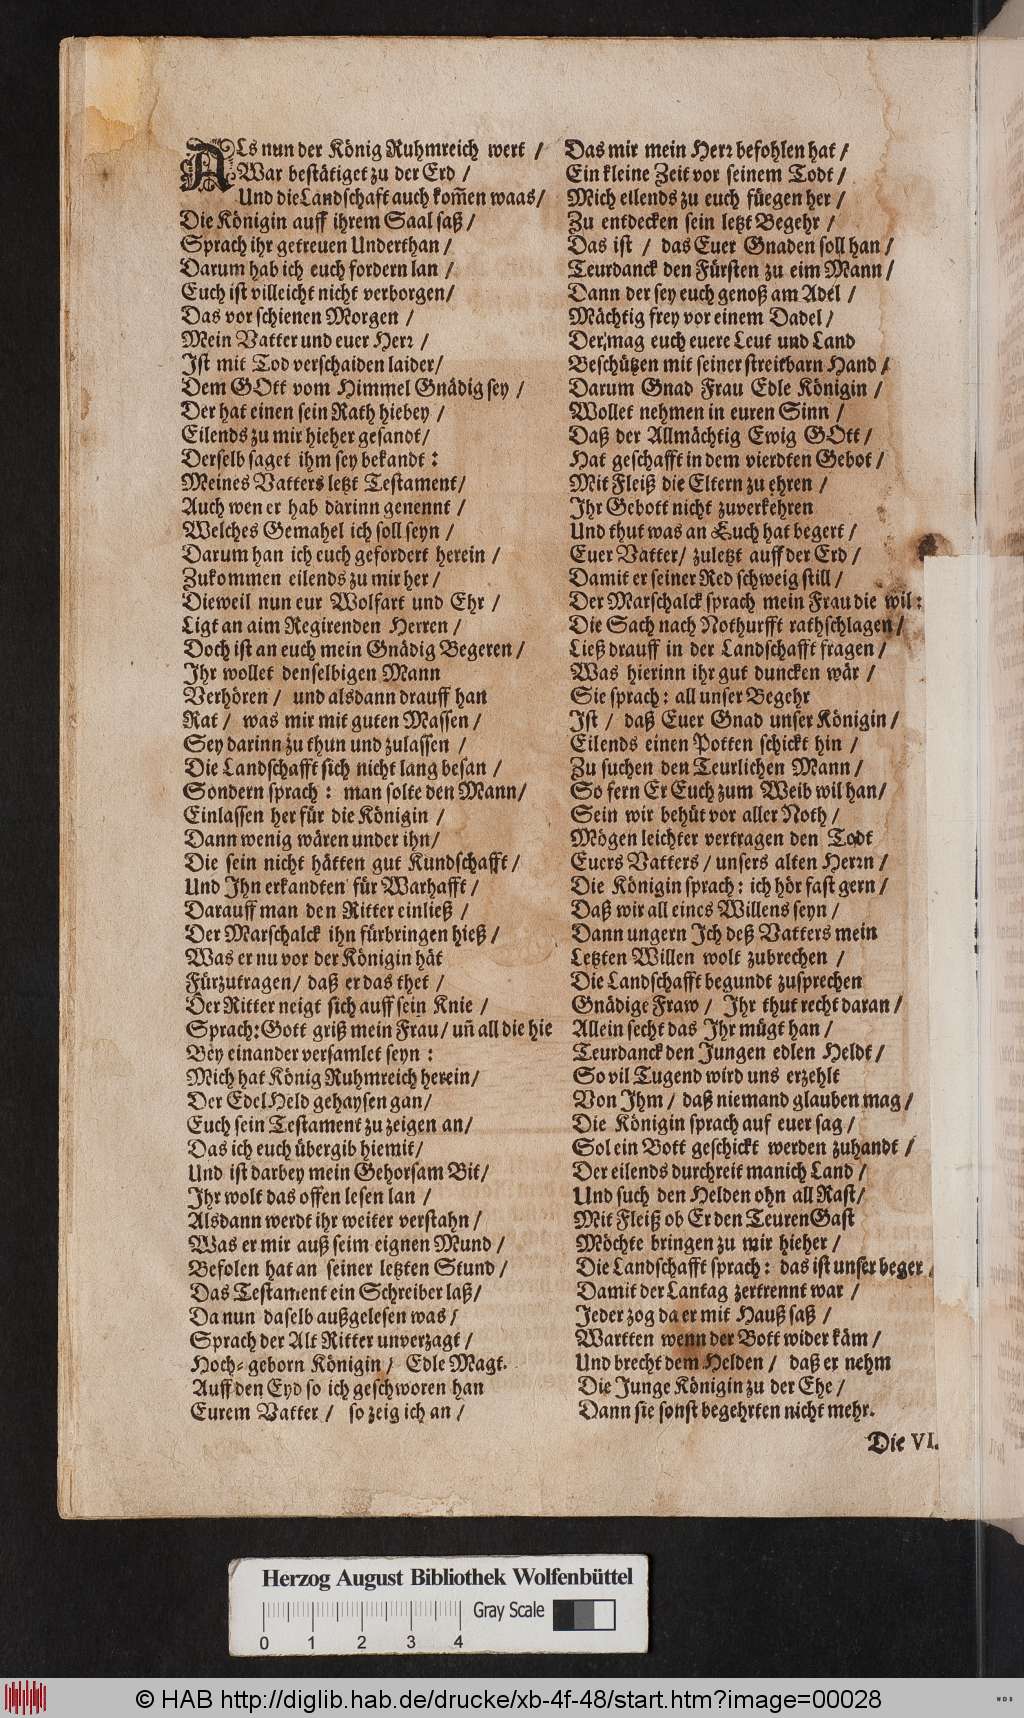 Als nun der König Ruhmreich wert /
War bestätiget zu der Erd /
Und die Landschaft auch kom̃en waas /
Die Königin auff ihrem Saal saß /
Sprach ihr getreuen Underthan /
Darum hab ich euch fordern lan /
Euch ist villeicht nicht verborgen /
Das vor schienen Morgen /
Mein Vatter und euer Herr /
Ist mit Tod verschaiden laider /
Dem GOtt vom Himmel Gnädig sey /
Der hat einen sein Rath hiebey /
Eilends zu mir hieher gesandt /
Derselb saget ihm sey bekandt :
Meines Vatters letzt Testament /
Auch wen er hab darinn genennt /
Welches Gemahel ich soll seyn /
Darum han ich euch gefordert herein /
Zukommen eilends zu mir her /
Dieweil nun eur Wolfart und Ehr /
Ligt an aim Regirenden Herren /
Doch ist an euch mein Gnädig Begeren /
Ihr wollet denselbigen Mann
Verhören / und alsdann drauff han
Rat / was mir mit guten Massen /
Sey darinn zu thun und zulassen /
Die Landschafft sich nicht lang besan /
Sondern sprach : man solte den Mann /
Einlassen her für die Königin /
Dann wenig wären under ihn /
Die sein nicht hätten gut Kundschafft /
Und Ihn erkandten für Warhafft /
Darauff man den Ritter einließ /
Der Marschalck ihn fürbringen hieß /
Was er nu vor der Königin hät
Fürzutragen / daß er das thet /
Der Ritter neigt sich auff sein Knie /
Sprach: Gott griß mein Frau / uñ all die hie
Bey einander versamlet seyn :
Mich hat König Ruhmreich herein /
Der Edel Held gehaysen gan /
Euch sein Testament zu zeigen an /
Das ich euch übergib hiemit /
Und ist darbey mein Gehorsam Bit /
Ihr wolt das offen lesen lan /
Alsdann werdt ihr weiter verstahn /
Was er mir auß seim eignen Mund /
Befolen hat an seiner letzten Stund /
Das Testament ein Schreiber laß /
Da nun daselb außgelesen was /
Sprach der Alt Ritter unverzagt /
Hoch- geborn Königin / Edle Magt.
Auff den Eyd so ich geschworen han
Eurem Vatter / so zeig ich an /
Das mir mein Herr befohlen hat /
Ein kleine Zeit vor seinem Todt /
Mich eilends zu euch füegen her /
Zu entdecken sein letzt Begehr /
Das ist / das Euer Gnaden soll han /
Teurdanck den Fürsten zu eim Mann /
Dann der sey euch genoß am Adel /
Mächtig frey vor einem Dadel /
Der mag euch euere Leut und Land
Beschützen mit seiner streitbarn Hand /
Darum Gnad Frau Edle Königin /
Wollet nehmen in euren Sinn /
Daß der Allmächtig Ewig GOtt /
Hat geschafft in dem vierdten Gebot /
Mit Fleiß die Eltern zu ehren /
Ihr Gebott nicht zuverkehren
Und thut was an Euch hat begert /
Euer Vatter / zuletzt auff der Erd /
Damit er seiner Red schweig still /
Der Marschalck sprach mein Frau die wil :
Die Sach nach Nothurfft rathschlagen /
Ließ drauff in der Landschafft fragen /
Was hierinn ihr gut duncken wär /
Sie sprach : all unser Begehr
Ist / daß Euer Gnad unser Königin /
Eilends einen Potten schickt hin /
Zu suchen den Teurlichen Mann /
So fern Er Euch zum Weib wil han /
Sein wir behüt vor aller Noth /
Mögen leichter vertragen den Todt
Euers Vatters / unsers alten Herrn /
Die Königin sprach : ich hör fast gern /
Daß wir all eines Willens seyn /
Dann ungern Ich deß Vatters mein
Letzten Willen wolt zubrechen /
Die Landschafft begundt zusprechen
Gnädige Fraw / Ihr thut recht daran /
Allein secht das Ihr mügt han /
Teurdanck den Jungen edlen Heldt /
So vil Tugend wird uns erzehlt
Von Ihm / daß niemand glauben mag /
Die Königin sprach auf euer sag /
Sol ein Bott geschickt werden zuhandt /
Der eilends durchreit manich Land /
Und such den Helden ohn all Rast /
Mit Fleiß ob Er den Teuren Gast
Möchte bringen zu mir hieher /
Die Landschafft sprach : das ist unser beger /
Damit der Lantag zertrennt war /
Jeder zog da er mit Hauß saß /
Wartten wenn der Bott wider käm /
Und brecht dem Helden / daß er nehm
Die Junge Königin zu der Ehe /
Dann sie sonst begehrten nicht mehr.
Die VI.
Herzog August Bibliothek Wolfenbüttel
Gray Scale
0 1 2 3 4
© HAB http://diglib.hab.de/drucke/xb-4f-48/start.htm?image=00028